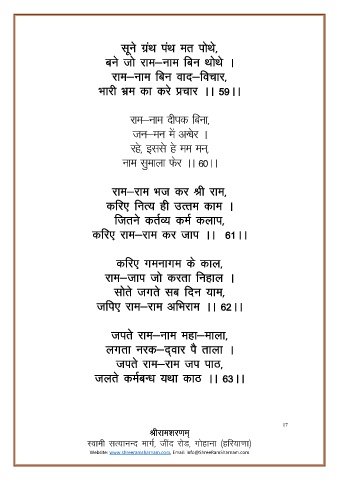 सूने ग्रंथ पंथ मत पोथे,
बने जो राम–नाम बिन थोथे ।
राम–नाम बिन वाद–विचार,
भारी भ्रम का करे प्रचार ।। 59।।
राम–नाम दीपक बिना,
जन–मन में अन्धेर ।
रहे, इससे हे मम मन,
नाम सुमाला फेर ।। 60।।
राम–राम भज कर श्री राम,
करिए नित्य ही उत्तम काम ।
जितने कर्तव्य कर्म कलाप,
करिए राम–राम कर जाप ।। 61।।
करिए गमनागम के काल,
राम–जाप जो करता निहाल ।
सोते जगते सब दिन याम,
जपिए राम–राम अभिराम ।। 62।।
जपते राम–नाम महा–माला,
लगता नरक–द्वार पै ताला ।
जपते राम–राम जप पाठ,
जलते कर्मबन्ध यथा काठ ।। 63।।
17
श्रीरामशरणम्
स्वामी सत्यानन्द मार्ग, जींद रोड, गोहाना (हरियाणा)
Website: www.shreeramsharnam.com, Email: info@ShreeRamSharnam.com